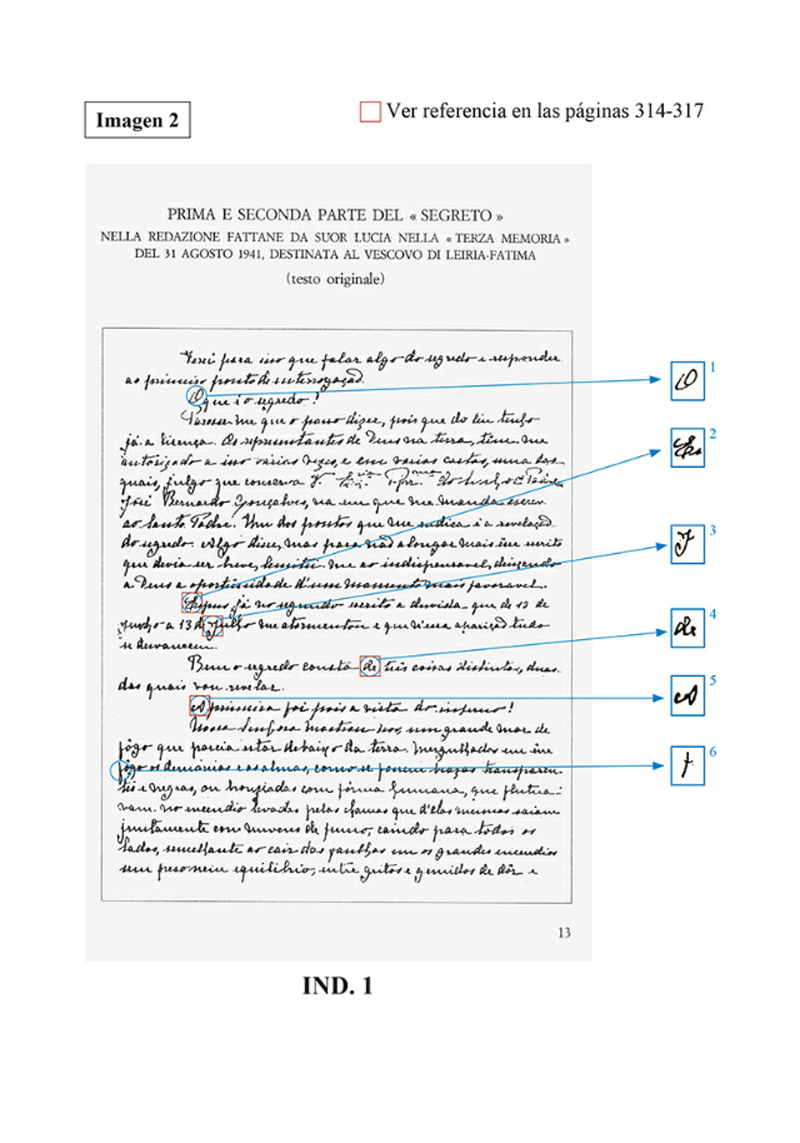 Imagen 2
Ver referencia en las páginas 314-317
PRIMA E SECONDA PARTE DEL « SEGRETO »
NELLA REDAZIONE FATTANE DA SUOR LUCIA NELLA « TERZA MEMORIA »
DEL 31 AGOSTO 1941, DESTINATA AL VESCOVO DI LEIRIA-FATIMA
(testo originale)
Terei para isso que falar algo do segredo e responder
ao primeiro ponto de interrogação.
O que é o segredo?
Parece-me que o posso dizer, pois que do Ceu tenho
já a licença. Os representantes de Deus na terra, têm-me
autorizado a isso varias vezes, e em varias cartas, uma das
quais, julgo que conserva V. Ex.cia Rev.ma do Senhor P. Padre
José Bernardo Gonçalves, na em que me manda escrever
ao Santo Padre. Um dos pontos que me indica é a revelação
do segredo. Algo disse, mas para não alongar mais esse escrito
que devia ser breve, limitei-me ao indispensavel, deixando
a Deus a oportunidade d'um momento mais favoravel.
Expus já no segundo escrito a duvida que de 13 de
Junho a 13 de Julho me atormentou e que n'essa aparição tudo
se desvaneceu.
Bem o segredo consta de três coisas distintas, duas
das quais vou revelar.
A primeira foi pois a vista do inferno!
Nossa Senhora mostrou-nos um grande mar de
fôgo que parcia estar debaixo da terra. Mergulhados em êsse
fôgo os demónios e as almas, como se fossem brazas transparen-
tes e negras, ou bronziadas com fórma humana, que flutua-
vam no incendio levadas pelas chamas que d'elas mesmas saiam
juntamente com nuvens de fumo, caindo para todos os
lados, semelhante ao cair das faulhas em os grandes incendios
sem peso nem equilibrio, entre gritos e gemidos de dôr e
13
1
O
2
Ex
3
J
4
de
5
A
6
IND. 1